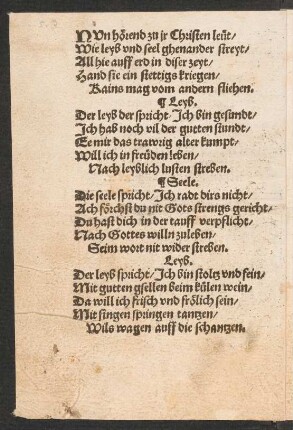 NUn hörend zu jr Christen leüt/
Wie leyb vnd seel ghenander streyt/
All hie auff erd in diser zeyt/
Hand sie ein stettigs kriegen/
Kains mag vom andern fliehen.
¶ Leyb.
Der leyb der spricht/ Jch bin gesundt/
Jch hab noch vil der gutten stundt/
Ee mir das trawrig alter kumpt/
Will ich in freüden leben/
Nach leyblich lusten streben.
¶ Seele.
Die seele spricht/ Jch radt dirs nicht/
Ach förchst du nit Gots strengs gericht/
Du hast dich in der tauff verpflicht/
Nach Gottes willn zuleben/
Seim wort nit wider streben.
Leyb.
Der leyb spricht/ Jch bin stoltz vnd fein/
Mit gutten gsellen beim külen wein/
Da will ich frisch vnd frölich sein/
Mit singen springen tantzen/
Wils wagen auff die schantzen.